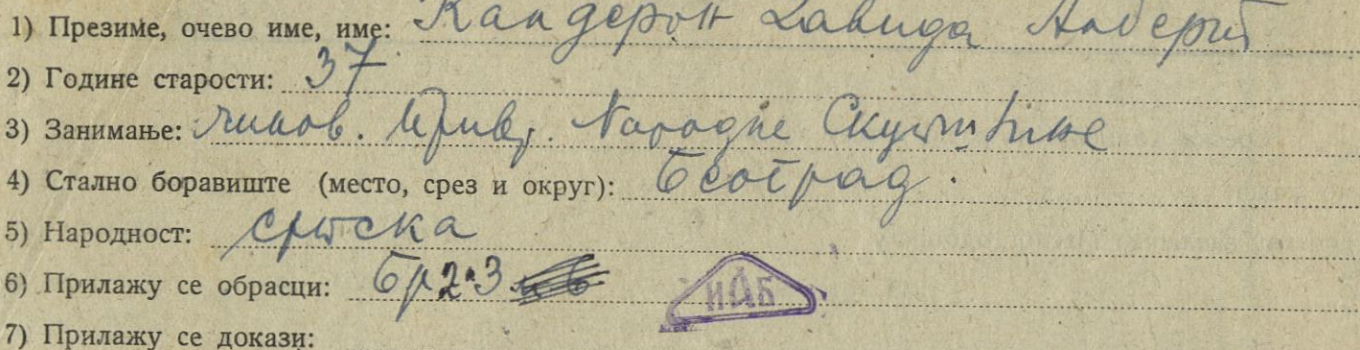 1) Презиме, очево име, име: Кандерон Давида Алберт
2) Године старости: 37
3) Занимање: чинов. Прив. Народне Скупштине
4) Стално боравиште (место, срез и округ): Београд.
5) Народност: српска
6) Прилажу се обрасци: Бр 2 и 3 ИАБ
7) Прилажу се докази: